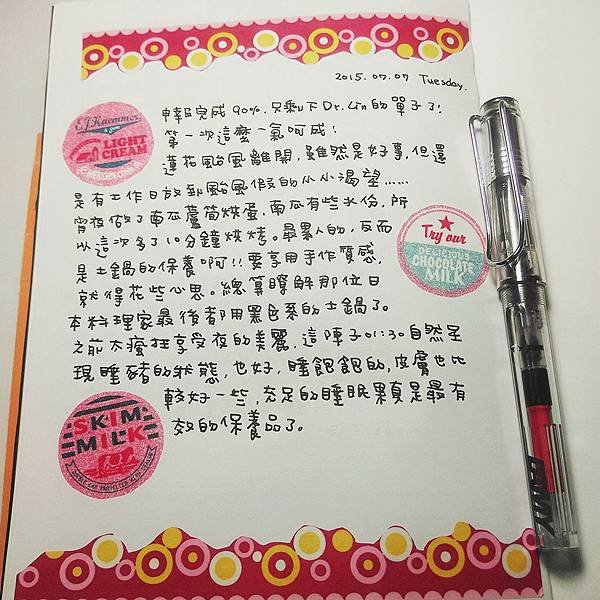 2015.07.07 Tuesday.
申報完成90%,只剩下Dr.Lin的單子了!
第一次這麼一氣呵成!
蓮花颱風離開,雖然是好事,但還
是有工作日放到颱風假的小小渴望……
宵夜做了南瓜蘆筍烘蛋,南瓜有些水份,所
以這次多了10分鐘烘烤。最累人的,反而
是土鍋的保養啊!!要享用手作質感,
就得花些心思。總算瞭解那位日
本料理家最後都用黑色系的土鍋了。
之前太瘋狂享受夜的美麗,這陣子01:30自然呈
現睡豬的狀態,也好,睡飽飽的,皮膚也比
較好一些,充足的睡眠果真是最有
效的保養品了。
E.J.Kaemmer
& Son
LIGHT
CREAM
Try our
DELICIOUS
CHOCOLATE
MILK
SKIM
MILK
LAMY